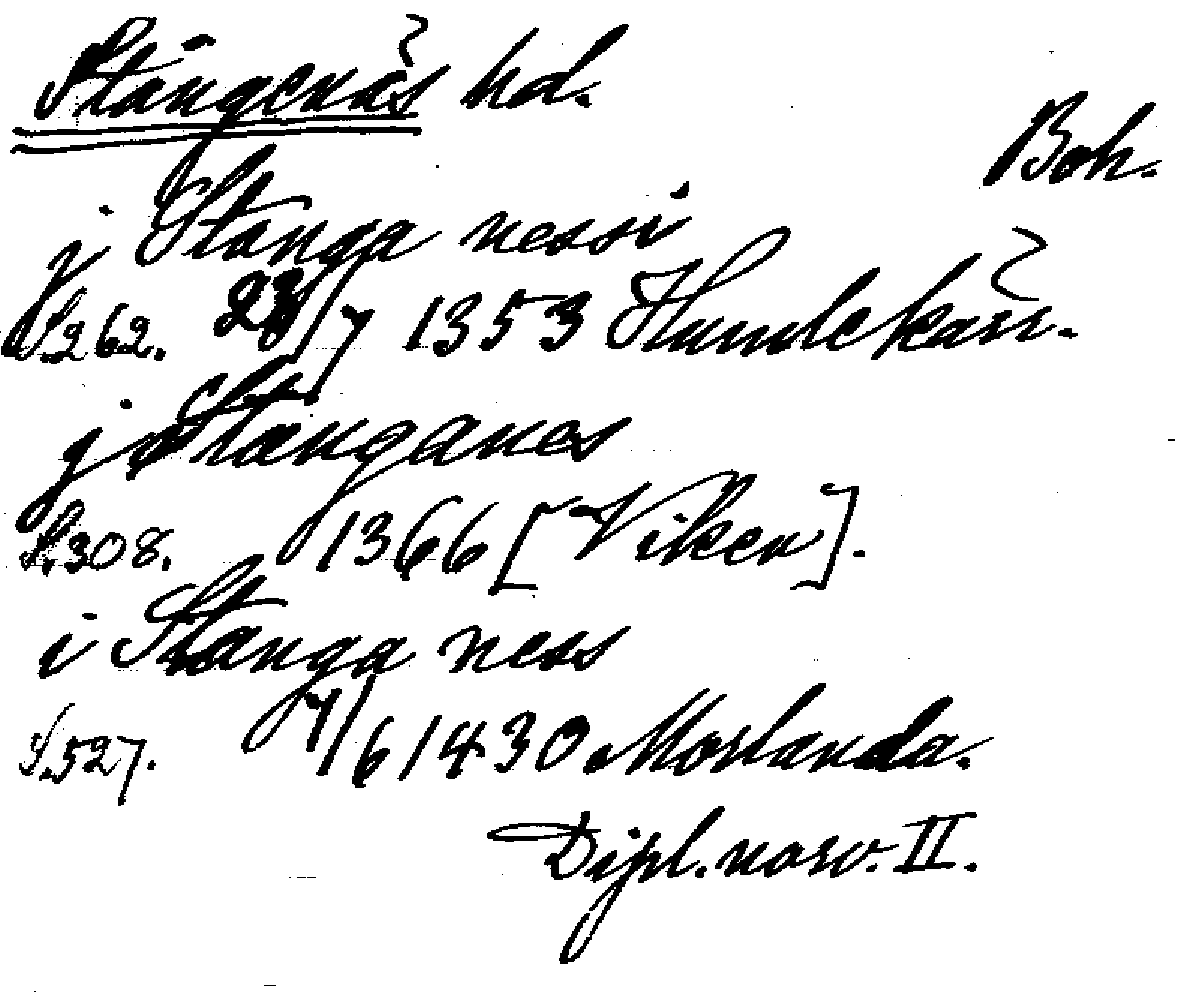 Stångenäs hd.
Boh.
j Stanga nessi
S.262. 23/7 1353 Hundekärr.
j Stanganes
S.308. 1366 [Viken].
i Stanga ness
S.527. 7/6 1430 Morlanda.
Dipl. norv. II.